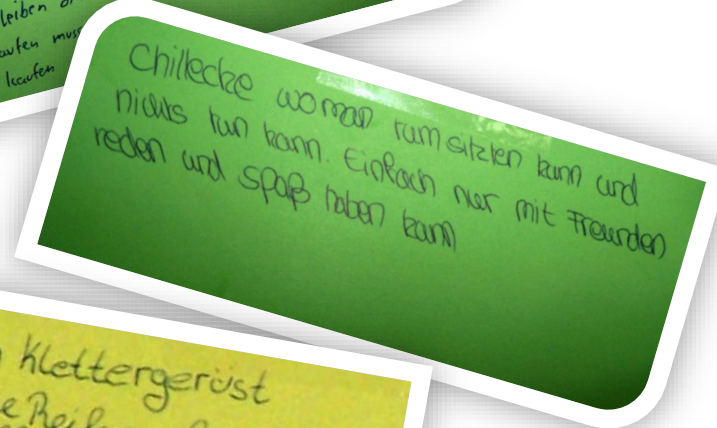 leiben
kaufen
Chillecke wo man rum sitzten kann und
nichts tun kann. Einfach nur mit Freunden
reden und spaß haben kann
Klettergerüst